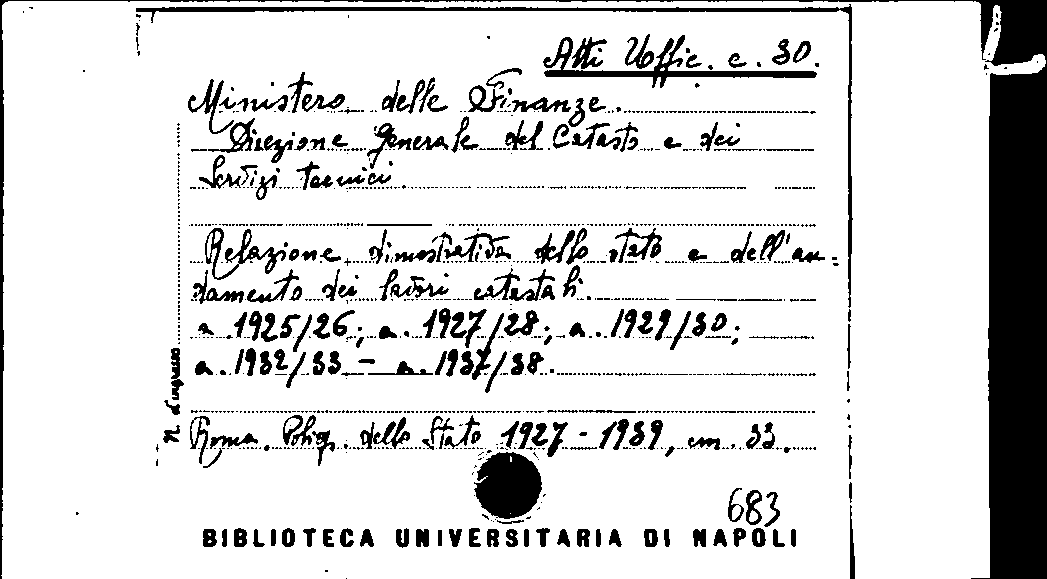 Atti Uffic. c. 30.
Ministero delle Finanze.
Direzione Generale del Catasto e dei
Servizi tecnici.
Relazione dimostrativa dello stato e dell'an=
damento dei lavori catastali.
a. 1925/26; a. 1927/28; a. 1929/30;
a. 1932/33 - a. 1937/38.
N. d'ingresso
Roma. Polig. dello Stato 1927 - 1939, cm. 33.
683
BIBLIOTECA UNIVERSITARIA DI NAPOLI